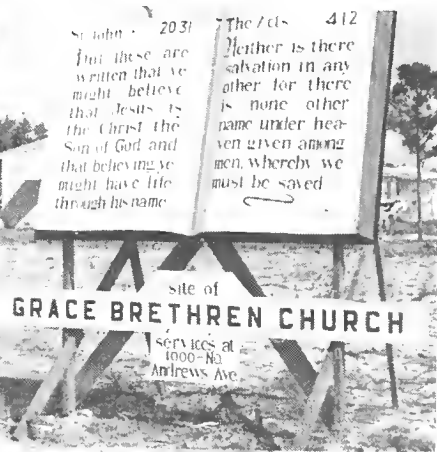 St John · 20 31
But these are
written that ye
might believe
that Jesus is
the Christ the
Son of God and
that believing ye
might have life
through his name
The Acts 4 12
Neither is there
salvation in any
other for there
is none other
name under hea-
ven given among
men, whereby we
must be saved
site of
GRACE BRETHREN CHURCH
services at
1000-No.
Andrews Ave.